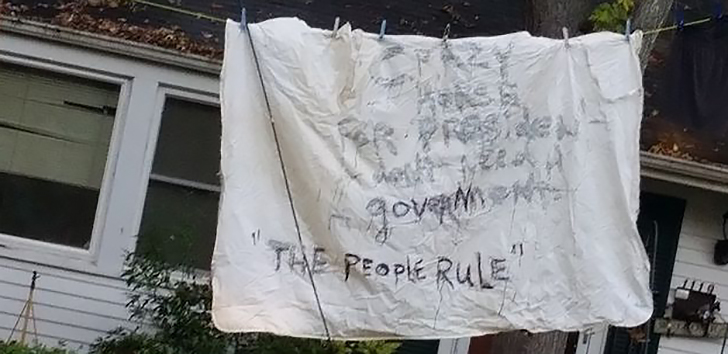 CRAZY
HORSE
FOR PRESIDENT
WON'T NEED A
government
"THE PEOPLE RULE"